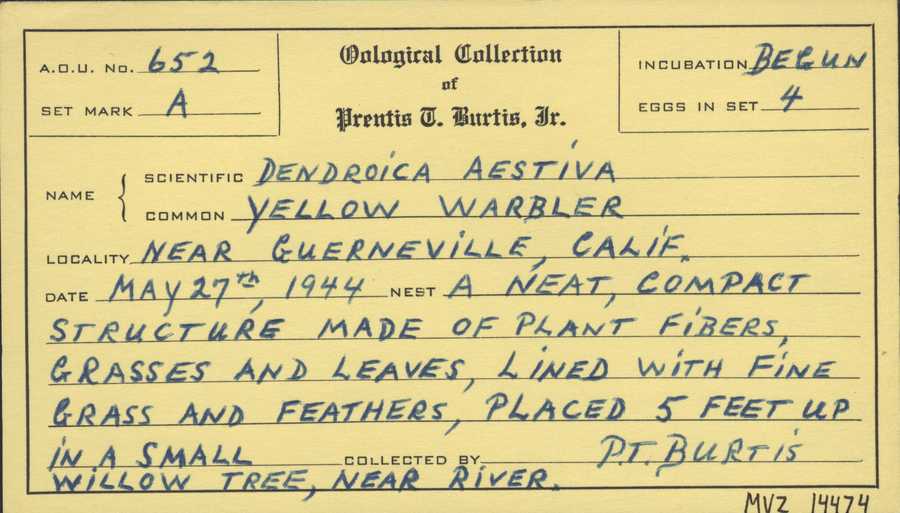 A.O.U. No. 652
SET MARK A
Oological Collection
of
Prentis T. Burtis, Jr.
INCUBATION BEGUN
EGGS IN SET 4
NAME { SCIENTIFIC DENDROICA AESTIVA
COMMON YELLOW WARBLER
LOCALITY NEAR GUERNEVILLE, CALIF.
DATE MAY 27th, 1944 NEST A NEAT, COMPACT
STRUCTURE MADE OF PLANT FIBERS,
GRASSES AND LEAVES, LINED WITH FINE
GRASS AND FEATHERS, PLACED 5 FEET UP
IN A SMALL COLLECTED BY P.T. BURTIS
WILLOW TREE, NEAR RIVER.
MVZ 14474